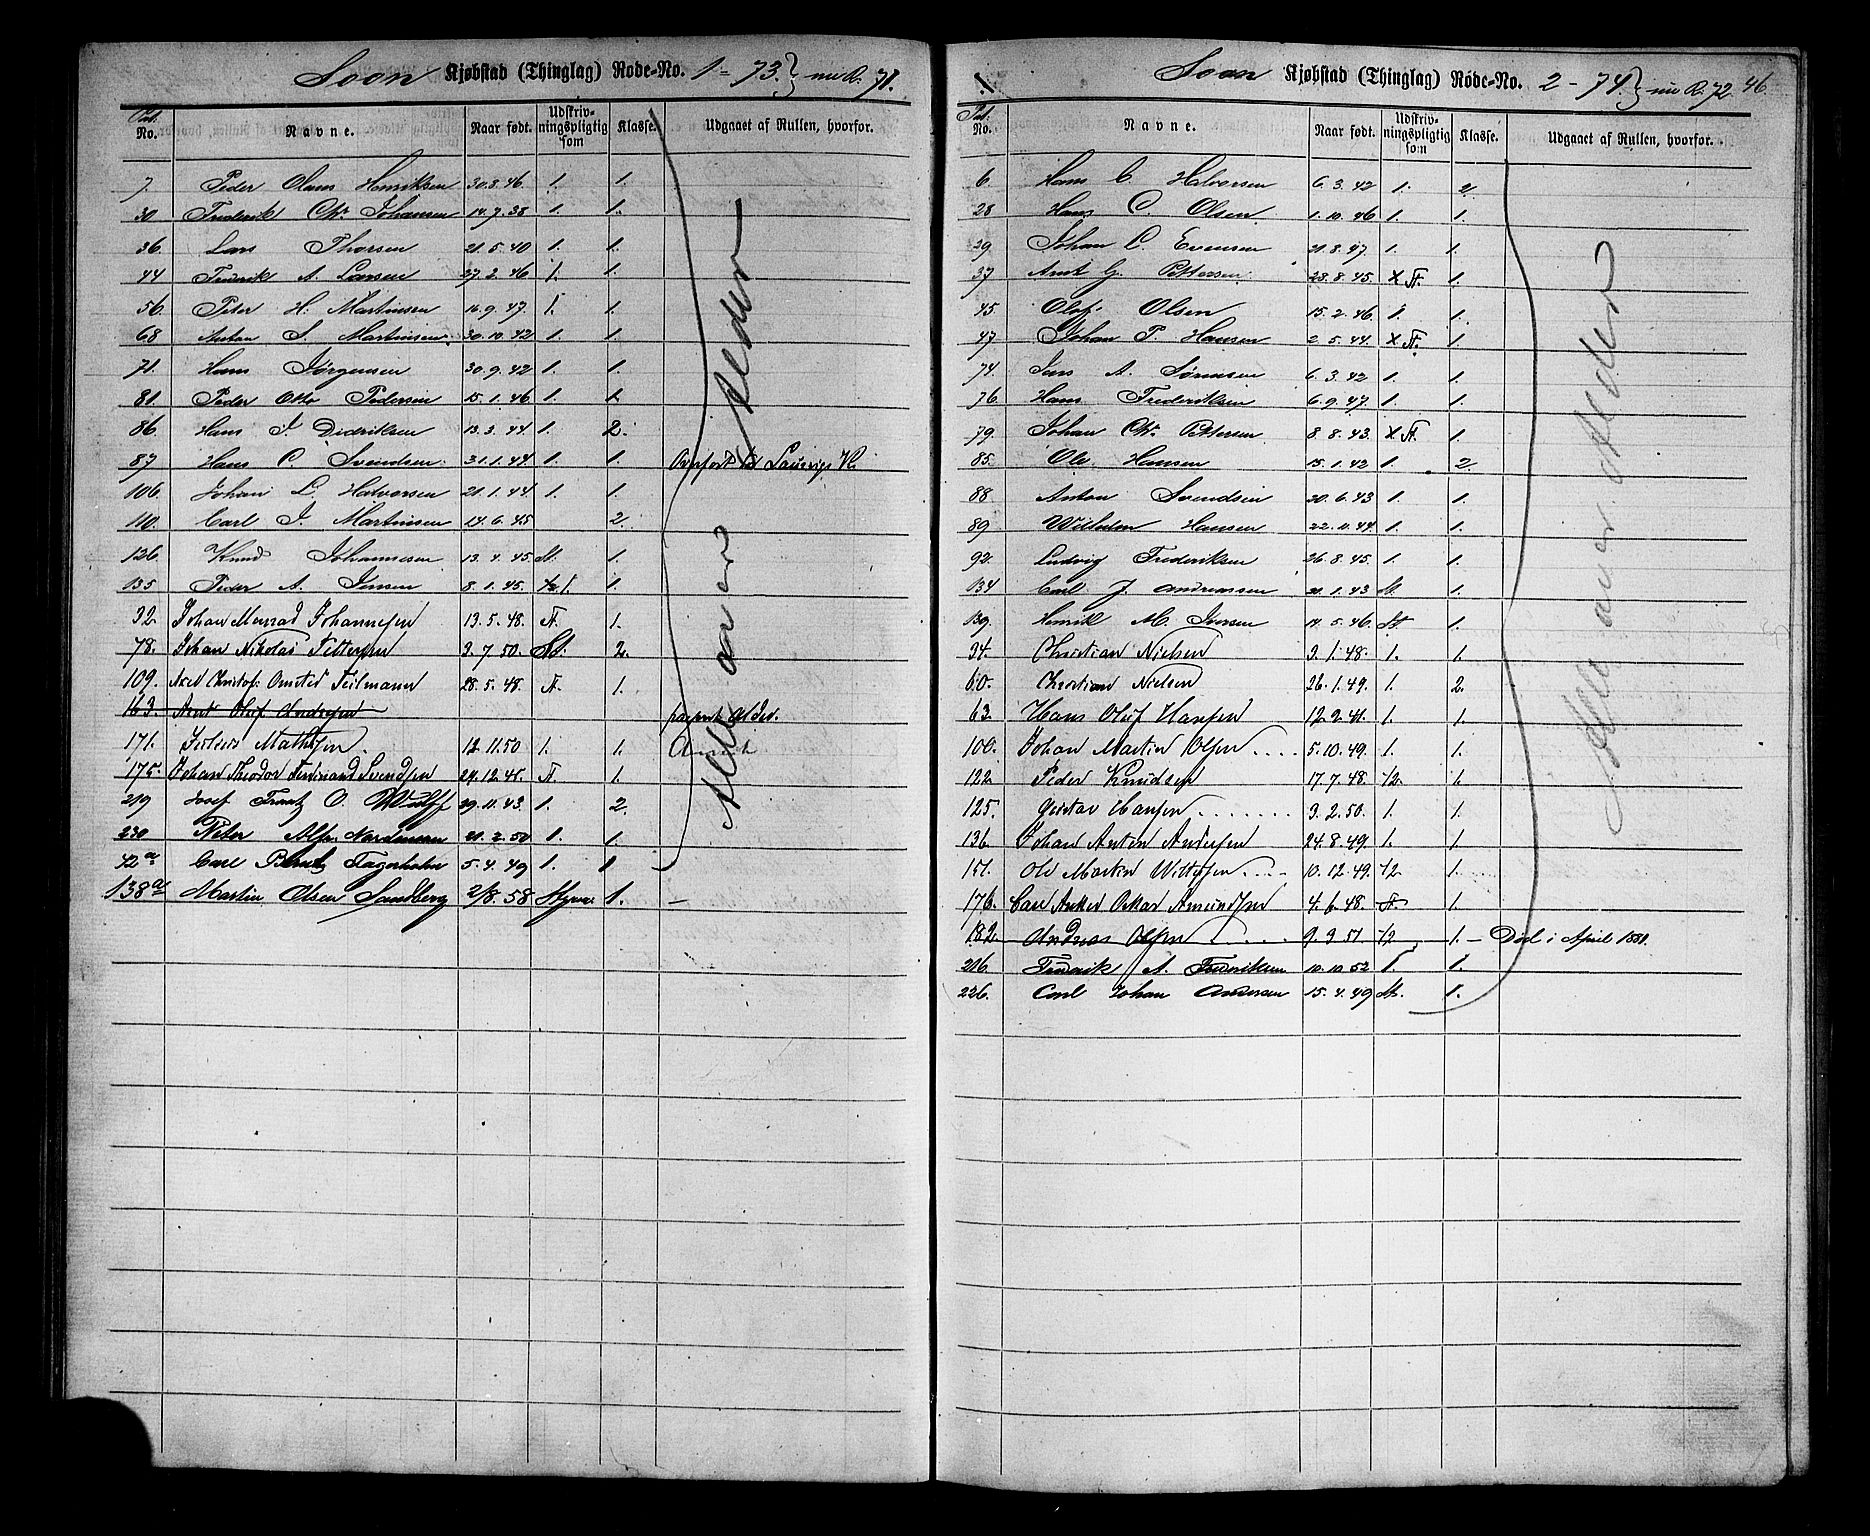 Soon Kjøbstad (Thinglag) Rode-No. 1 - 73. nu R. 71.
Pat. No. Navne. Naar født. Udskrivningspligtig som Klasse. Udgaaet af Rullen, hvorfor.
7. Peder Olaus Henriksen 30.3.46 1. 1.
30 Frederik Chr. Johansen 14.7.38 1. 1.
36. Lars Thorsen 21.5.40 1. 1.
44 Fredrik A. Larsen 27.2.46 1. 1.
56. Peter H. Martinsen 16.9.47. 1. 1.
68 Anton S. Martinsen 30.10.42 1. 1.
71. Hans Jørgensen 30.9.42 1. 1.
81. Peder Otto Pedersen 15.1.46 1. 1.
86. Hans J. Didriksen 13.3.44 1. 2.
87 Hans C. Svendsen 31.1.44 1. 1. Overført til Laurvigs R.
106. Johan L. Halvorsen 21.1.44 1. 1.
110. Carl J. Martinsen 14.6.45 2.
126. Knud Johannesen 13.4.45 St. 1.
135 Peder A. Jensen 8.1.45. 1/2 1. 1.
32 Johan Johannesen 13.5.48. St. 1.
78. Johan Nikolai Pettersen 3.7.50. St. 2.
109. Axel Christof. Omsted Feilmann 28.5.48. St. 1.
163. Arnt Oluf Andresen
171. Julius Mathisen. 12.11.50 1. 1.
175. Johan Theodor Ferdinand Svendsen 24.12.48. St. 1.
219 Josef Frantz O. Wulff 29.11.43 1. 2.
230 Peter Alfr. Nordemann 21.2.50 1. 1.
42a Carl Bernt Fagerholm 5.4.49 1. 1
138a Martin Olsen Sandberg 2/8.58 Styrm. 1. –
Alle over Alder
Soon Kjøbstad (Thinglag) Rode-No. 2 - 74. nu R. 72 46.
Pat. No. Navne. Naar født. Udskrivningspligtig som Klasse. Udgaaet af Rullen, hvorfor.
6. Hans C. Halvorsen 6.3.42 1. 2.
28 Hans C. Olsen 1.10.46 1. 1.
29 Johan C. Evensen 21.8.47. 1. 1.
37 Arnt G. Pettersen 23.8.45. X St. 1.
45. Olof Olsen 15.2.46 1. 1.
47 Johan P. Hansen 2.5.44. X St. 1.
74. Lars A. Sørensen 6.3.42 1. 1.
76. Hans Frederiksen 6.9.47. 1. 1.
79. Johan Chr. Pettersen 8.8.43. X St. 1.
85. Ole Hansen 15.1.42 1. 2.
88 Anton Svendsen 20.6.43 1. 1.
89 Wilhelm Hansen 22.11.44 1. 1.
92. Ludvig Frederiksen 26.8.45. 1. 1.
134 Carl J. Andreassen 21.1.43 St. 1.
139. Henrik M. Iversen 14.5.46. St. 1.
34. Christian Nielsen 3.1.48. 1. 1.
60. Christian Nielsen 26.1.49. 1. 2.
63. Hans Oluf Hansen 12.2.41. 1. 1.
100. Johan Martin Olsen . . . . 5.10.49. 1. 1.
122 Peder Knudsen 17.7.48. 1/2. 1.
125. Gustav Hansen . . . . . . . 3.2.50. 1. 1.
136. Johan Anton Andersen 24.8.49. 1. 1.
151. Ole Martin . . . . 10.12.49. 1/2. 1.
176. Carl Anker Oskar Amundsen 4.6.48. St. 1.
182. Andreas Olsen . . . . 9.9.51. 1/2 1. – Død i April 1881.
216. Fredrik A. Fredriksen 10.10.52 1. 1.
226. Carl Johan Andersen 15.4.49 St. 1.
Alle over Alder